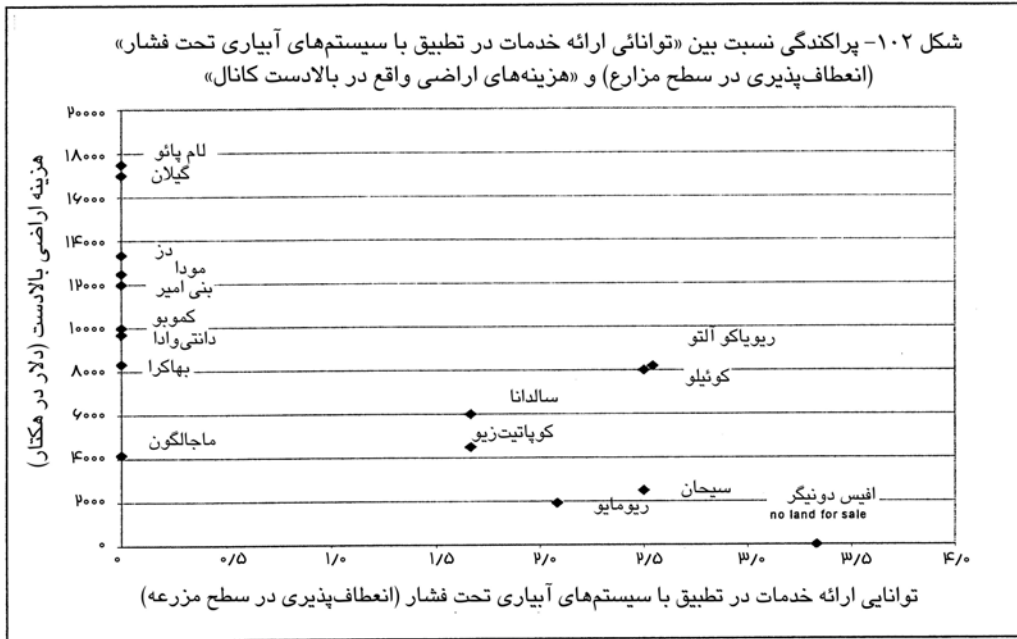 شکل ۱۰۲- پراکندگی نسبت بین «توانائی ارائه خدمات در تطبیق با سیستم‌های آبیاری تحت فشار»
(انعطاف‌پذیری در سطح مزارع) و «هزینه‌های اراضی واقع در بالادست کانال»
هزینه اراضی بالادست (دلار در هکتار)
۲۰۰۰۰
۱۸۰۰۰
۱۶۰۰۰
۱۴۰۰۰
۱۲۰۰۰
۱۰۰۰۰
۸۰۰۰
۶۰۰۰
۴۰۰۰
۲۰۰۰
۰
لام پائو
گیلان
دز
مودا
بنی امیر
کموبو
دانتی‌وادا
بهاکرا
ماجالگون
ریویاکو آلتو
کوئیلو
سالدانا
کوپاتیت‌زیو
سیحان
ریومایو
افیس دونیگر
no land for sale
۰ ۰/۵ ۱/۰ ۱/۵ ۲/۰ ۲/۵ ۳/۰ ۳/۵ ۴/۰
توانایی ارائه خدمات در تطبیق با سیستم‌های آبیاری تحت فشار (انعطاف‌پذیری در سطح مزرعه)